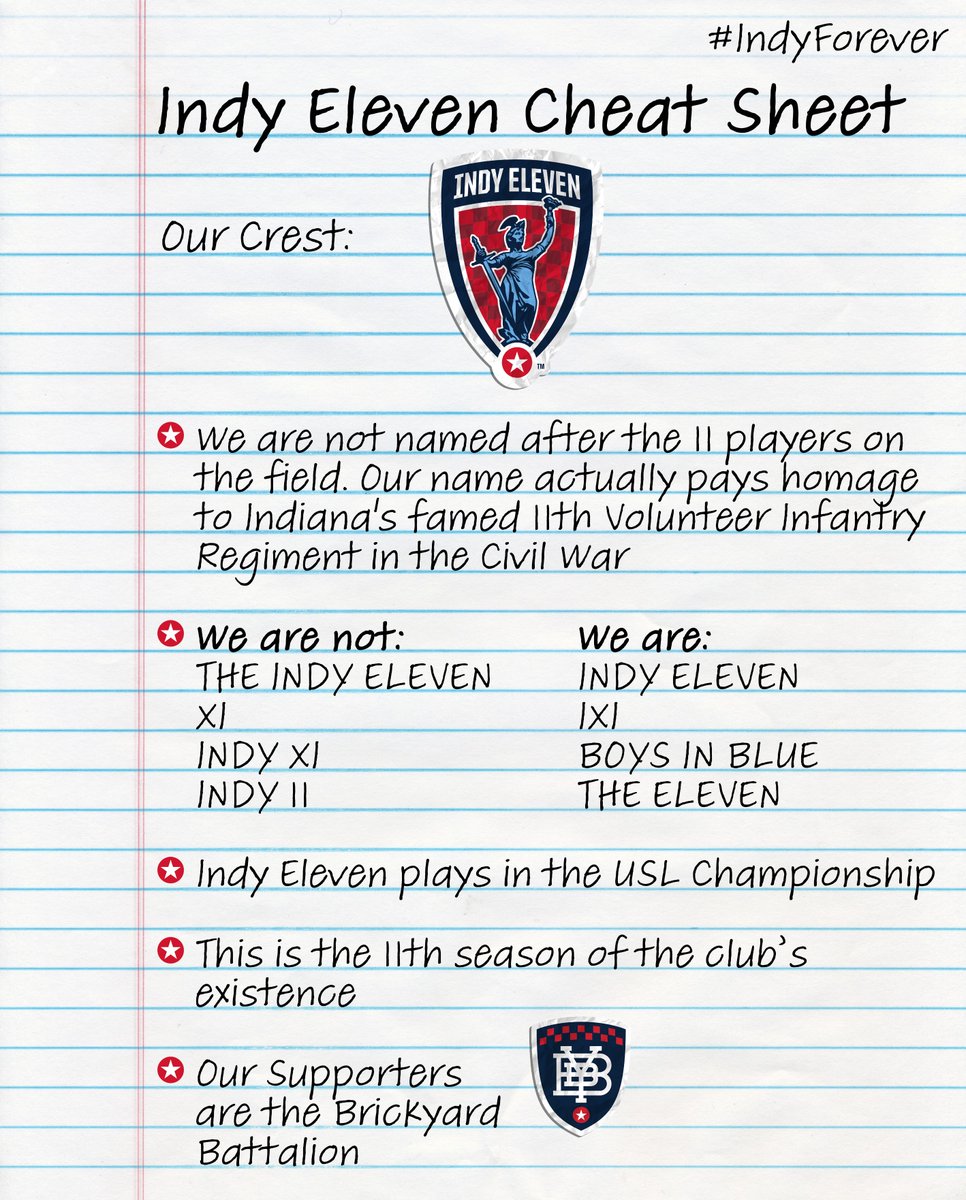 #IndyForever
Indy Eleven Cheat Sheet
INDY ELEVEN
Our Crest:
TM
We are not named after the 11 players on
the field. Our name actually pays homage
to Indiana's famed 11th Volunteer Infantry
Regiment in the Civil War
We are not: We are:
THE INDY ELEVEN INDY ELEVEN
XI IXI
INDY XI BOYS IN BLUE
INDY 11 THE ELEVEN
Indy Eleven plays in the USL Championship
This is the 11th season of the club's
existence
BYB
Our Supporters
are the Brickyard
Battalion